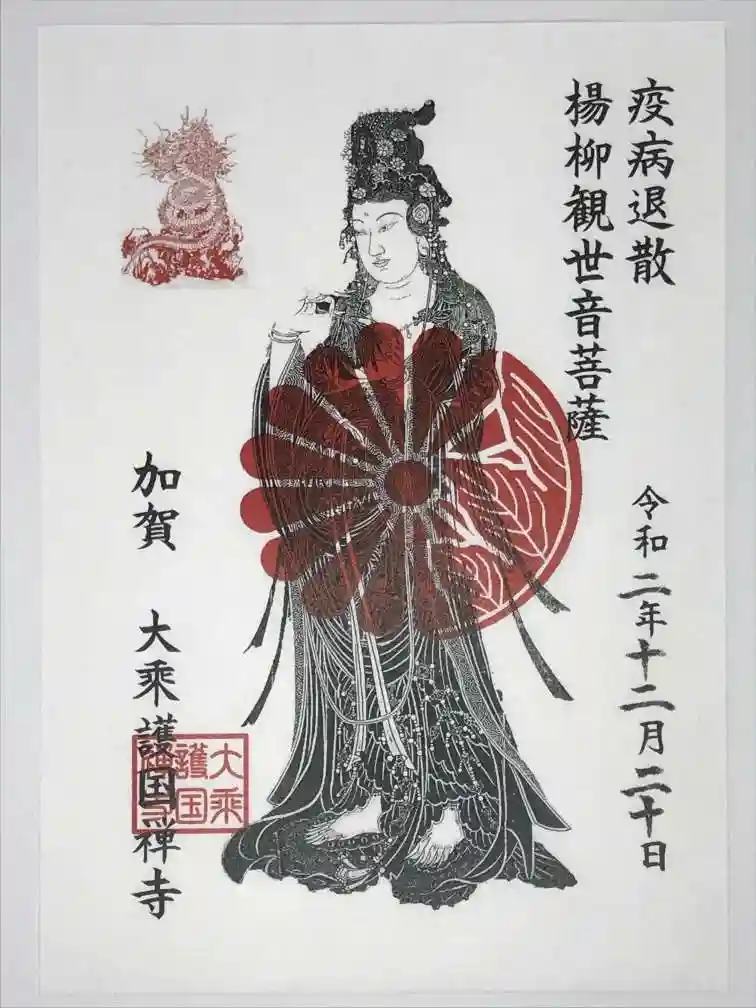 疫病退散
楊柳観世音菩薩
令和二年十二月二十日
加賀 大乗護国禅寺
大乗
護国
禅寺